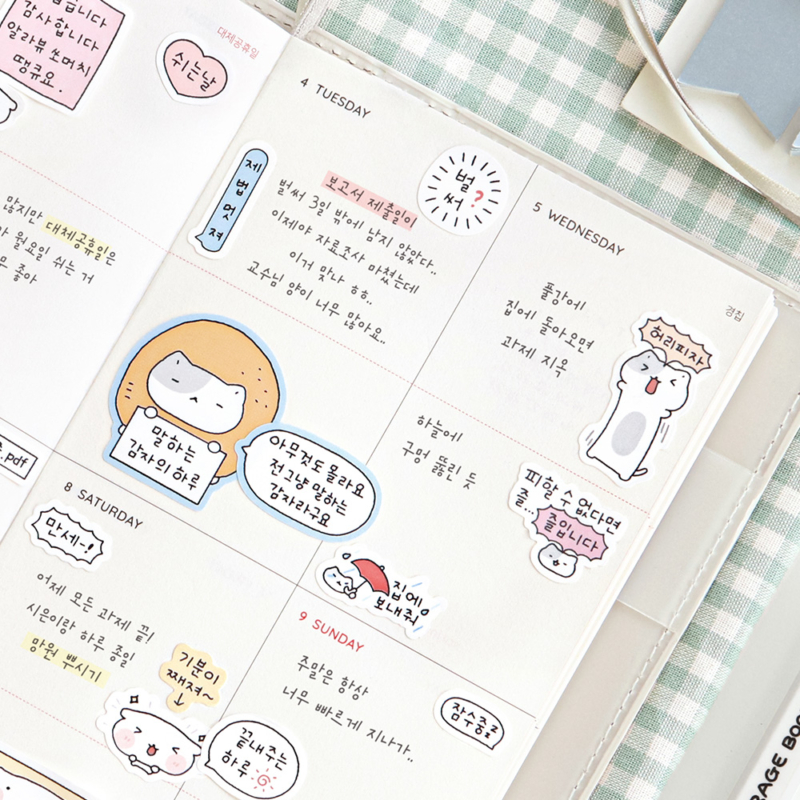 감사합니다
알라뷰 쏘머치
땡큐요.
대체공휴일
쉬는날
많지만 대체공휴일은
월요일 쉬는 거
좋아
.pdf
4 TUESDAY
제법 멋져
보고서 제출일이
벌써 3일 밖에 남지 않았다..
이제야 자료조사 마쳤는데
이거 맞나 ㅎㅎ..
교수님 양이 너무 많아요..
벌써?
말하는
감자의 하루
아무것도 몰라요
전 그냥 말하는
감자라구요
5 WEDNESDAY
경칩
종강에
집에 돌아오면
과제 지옥
허리피자
하늘에
구멍 뚫린 듯
피할 수 없다면
즐...
즐입니다
집에
보내줘
8 SATURDAY
만세~!
어제 모든 과제 끝!
시은이랑 하루 종일
망원 뿌시기
기분이
째져~
끝내주는
하루
9 SUNDAY
주말은 항상
너무 빠르게 지나가..
잠수중z
RAGE BOO